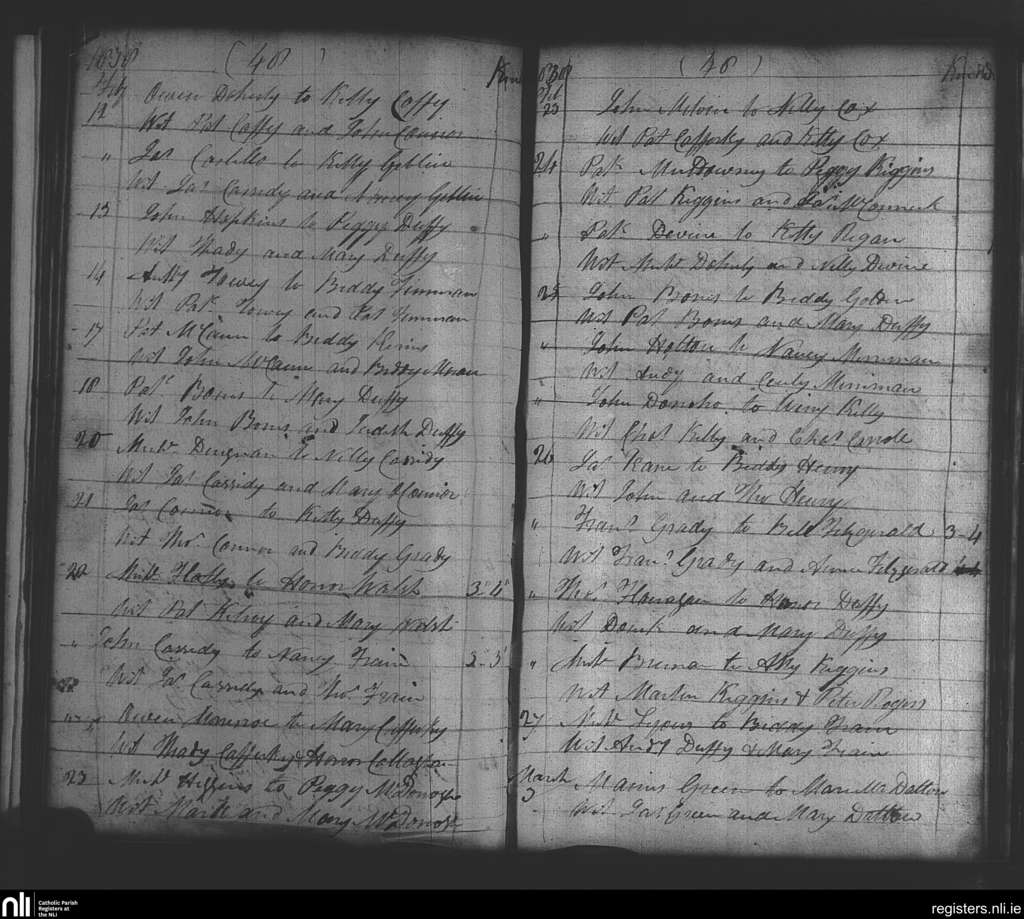 1838 (48) Kind
Feby
12 Owen Doherty to Kitty Caffy
Wit Pat Caffy and John Connor
" Jas Costillo to Kitty Giblin
Wit Jas Cassidy and Nancy Giblin
13 John Hopkins to Peggy Duffy
Wit Thady and Mary Duffy
14 Anty Towey to Biddy Finnan
Wit Pat. Towey and Pat Finnan
17 Pat McCann to Biddy
Wit John McCann and Biddy Moran
18 Patk Bones to Mary Duffy
Wit John Bones and Judith Duffy
20 Michl Dungnan to Nilly Cassidy
Wit Jas Cassidy and Mary OConnor
21 Jas Connor to Kitty Duffy
Wit Thos Connor and Biddy Grady
22 Michl to Honor Walsh 3"4"
Wit Pat Kilroy and Mary Walsh
" John Cassidy to Nancy Frain 3"3"
Wit Jas Cassidy and Thos Frain
" Owen Monroe to Mary Cafferky
Wit Thady Cafferky & Honor
23 Michl Higgins to Peggy McDonogh
Wit Mark and Mary McDonogh
1838 (48) Kindrd
Feb
23 John to Nilly Cox
Wit Pat Cafferky and Kitty Cox
24 Patk MuDowney to Peggy Higgins
Wit Pat Higgins and Jas McCormick
" Patk Devine to Kitty Regan
Wit Michl Doherty and Nilly Devine
25 John Bones to Biddy Golden
Wit Pat Bones and Mary Duffy
" John Hotton to Nancy Merriman
Wit Andy and Cecily Merriman
" John Donoho to Winy Kelly
Wit Chas Kelly and Chas Carrole
26 Jas Kane to Biddy Henry
Wit John and Thos Henry
" Frans Grady to Bill Fitzgerald 3-4
Wit Frans Grady and Anne Fitzgerald
" Thos Flanagan to Honor Duffy
Wit Domk and Mary Duffy
" Michl to Ally Higgins
Wit Martin Higgins & Peter Rogers
27 Michl to Biddy Frain
Wit Andy Duffy & Mary Frain
March
3 Green to Dalton
Wit Jas Green and Mary Dalton
nli
Catholic Parish
Registers at
the NLI
registers.nli.ie